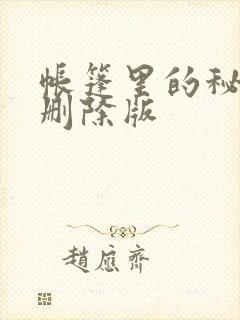 帐篷里的秘
删除版
赵应齐